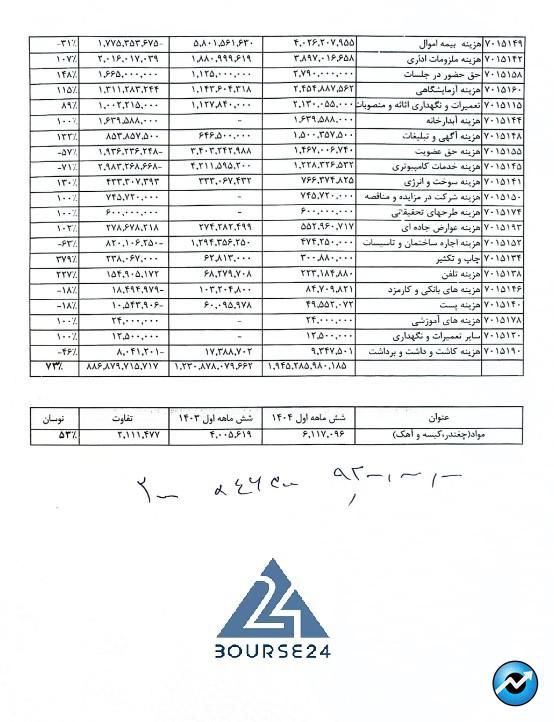 ۷۰۱۵۱۴۹ هزینه بیمه اموال ۴,۰۲۶,۲۰۷,۹۵۵ ۵,۸۰۱,۵۶۱,۶۳۰ -۱,۷۷۵,۳۵۳,۶۷۵ -۳۱%
۷۰۱۵۱۴۲ هزینه ملزومات اداری ۳,۸۹۷,۰۱۶,۶۵۸ ۱,۸۸۰,۹۹۹,۶۱۹ ۲,۰۱۶,۰۱۷,۰۳۹ ۱۰۷%
۷۰۱۵۱۵۸ حق حضور در جلسات ۲,۷۹۰,۰۰۰,۰۰۰ ۱,۱۲۵,۰۰۰,۰۰۰ ۱,۶۶۵,۰۰۰,۰۰۰ ۱۴۸%
۷۰۱۵۱۶۰ هزینه آزمایشگاهی ۲,۴۵۴,۸۸۷,۵۶۲ ۱,۱۴۳,۶۰۴,۳۱۸ ۱,۳۱۱,۲۸۳,۲۴۴ ۱۱۵%
۷۰۱۵۱۱۵ تعمیرات و نگهداری اثاثه و منصوبات ۲,۱۳۰,۰۵۵,۰۰۰ ۱,۱۲۷,۸۴۰,۰۰۰ ۱,۰۰۲,۲۱۵,۰۰۰ ۸۹%
۷۰۱۵۱۴۴ هزینه آبدارخانه ۱,۶۳۹,۵۸۸,۰۰۰ - ۱,۶۳۹,۵۸۸,۰۰۰ ۱۰۰%
۷۰۱۵۱۴۸ هزینه آگهی و تبلیغات ۱,۵۰۰,۳۵۷,۵۰۰ ۶۴۶,۵۰۰,۰۰۰ ۸۵۳,۸۵۷,۵۰۰ ۱۳۲%
۷۰۱۵۱۵۵ هزینه حق عضویت ۱,۴۶۷,۰۰۶,۷۴۰ ۳,۴۰۳,۲۴۲,۹۸۸ -۱,۹۳۶,۲۳۶,۲۴۸ -۵۷%
۷۰۱۵۱۴۵ هزینه خدمات کامپیوتری ۱,۲۲۸,۳۲۶,۵۳۲ ۴,۲۱۱,۵۹۵,۲۰۰ -۲,۹۸۳,۲۶۸,۶۶۸ -۷۱%
۷۰۱۵۱۴۱ هزینه سوخت و انرژی ۷۶۶,۳۷۴,۸۲۵ ۳۳۳,۰۶۷,۴۳۲ ۴۳۳,۳۰۷,۳۹۳ ۱۳۰%
۷۰۱۵۱۵۰ هزینه شرکت در مزایده و مناقصه ۷۴۵,۷۲۰,۰۰۰ - ۷۴۵,۷۲۰,۰۰۰ ۱۰۰%
۷۰۱۵۱۷۴ هزینه طرحهای تحقیقاتی ۶۰۰,۰۰۰,۰۰۰ - ۶۰۰,۰۰۰,۰۰۰ ۱۰۰%
۷۰۱۵۱۹۳ هزینه عوارض جاده ای ۵۵۲,۹۶۰,۷۱۷ ۲۷۴,۲۸۲,۴۹۹ ۲۷۸,۶۷۸,۲۱۸ ۱۰۲%
۷۰۱۵۱۵۲ هزینه اجاره ساختمان و تاسیسات ۴۷۴,۲۵۰,۰۰۰ ۱,۲۹۴,۳۵۶,۲۵۰ -۸۲۰,۱۰۶,۲۵۰ -۶۳%
۷۰۱۵۱۳۴ چاپ و تکثیر ۳۰۰,۸۸۰,۰۰۰ ۶۲,۸۱۳,۰۰۰ ۲۳۸,۰۶۷,۰۰۰ ۳۷۹%
۷۰۱۵۱۳۸ هزینه تلفن ۲۲۳,۱۸۴,۸۸۰ ۶۸,۲۷۹,۷۰۸ ۱۵۴,۹۰۵,۱۷۲ ۲۲۷%
۷۰۱۵۱۴۶ هزینه های بانکی و کارمزد ۸۴,۷۰۹,۸۲۱ ۱۰۳,۲۰۴,۸۰۰ -۱۸,۴۹۴,۹۷۹ -۱۸%
۷۰۱۵۱۴۰ هزینه پست ۴۹,۵۵۲,۰۷۲ ۶۰,۰۹۵,۹۷۸ -۱۰,۵۴۳,۹۰۶ -۱۸%
۷۰۱۵۱۷۸ هزینه های آموزشی ۲۴,۰۰۰,۰۰۰ - ۲۴,۰۰۰,۰۰۰ ۱۰۰%
۷۰۱۵۱۲۰ سایر تعمیرات و نگهداری ۱۲,۵۰۰,۰۰۰ - ۱۲,۵۰۰,۰۰۰ ۱۰۰%
۷۰۱۵۱۹۰ هزینه کاشت و داشت و برداشت ۹,۳۴۷,۵۰۱ ۱۷,۳۸۸,۷۰۲ -۸,۰۴۱,۲۰۱ -۴۶%
۱,۹۴۵,۲۸۵,۹۸۰,۱۸۵ ۱,۲۳۰,۸۷۸,۰۷۹,۶۶۲ ۸۸۶,۸۷۹,۷۱۵,۷۱۷ ۷۳%
عنوان شش ماهه اول ۱۴۰۴ شش ماهه اول ۱۴۰۳ تفاوت نوسان
مواد(چغندر،کیسه و آهک) ۶,۱۱۷,۰۹۶ ۴,۰۰۵,۶۱۹ ۲,۱۱۱,۴۷۷ ۵۳%
BOURSE24